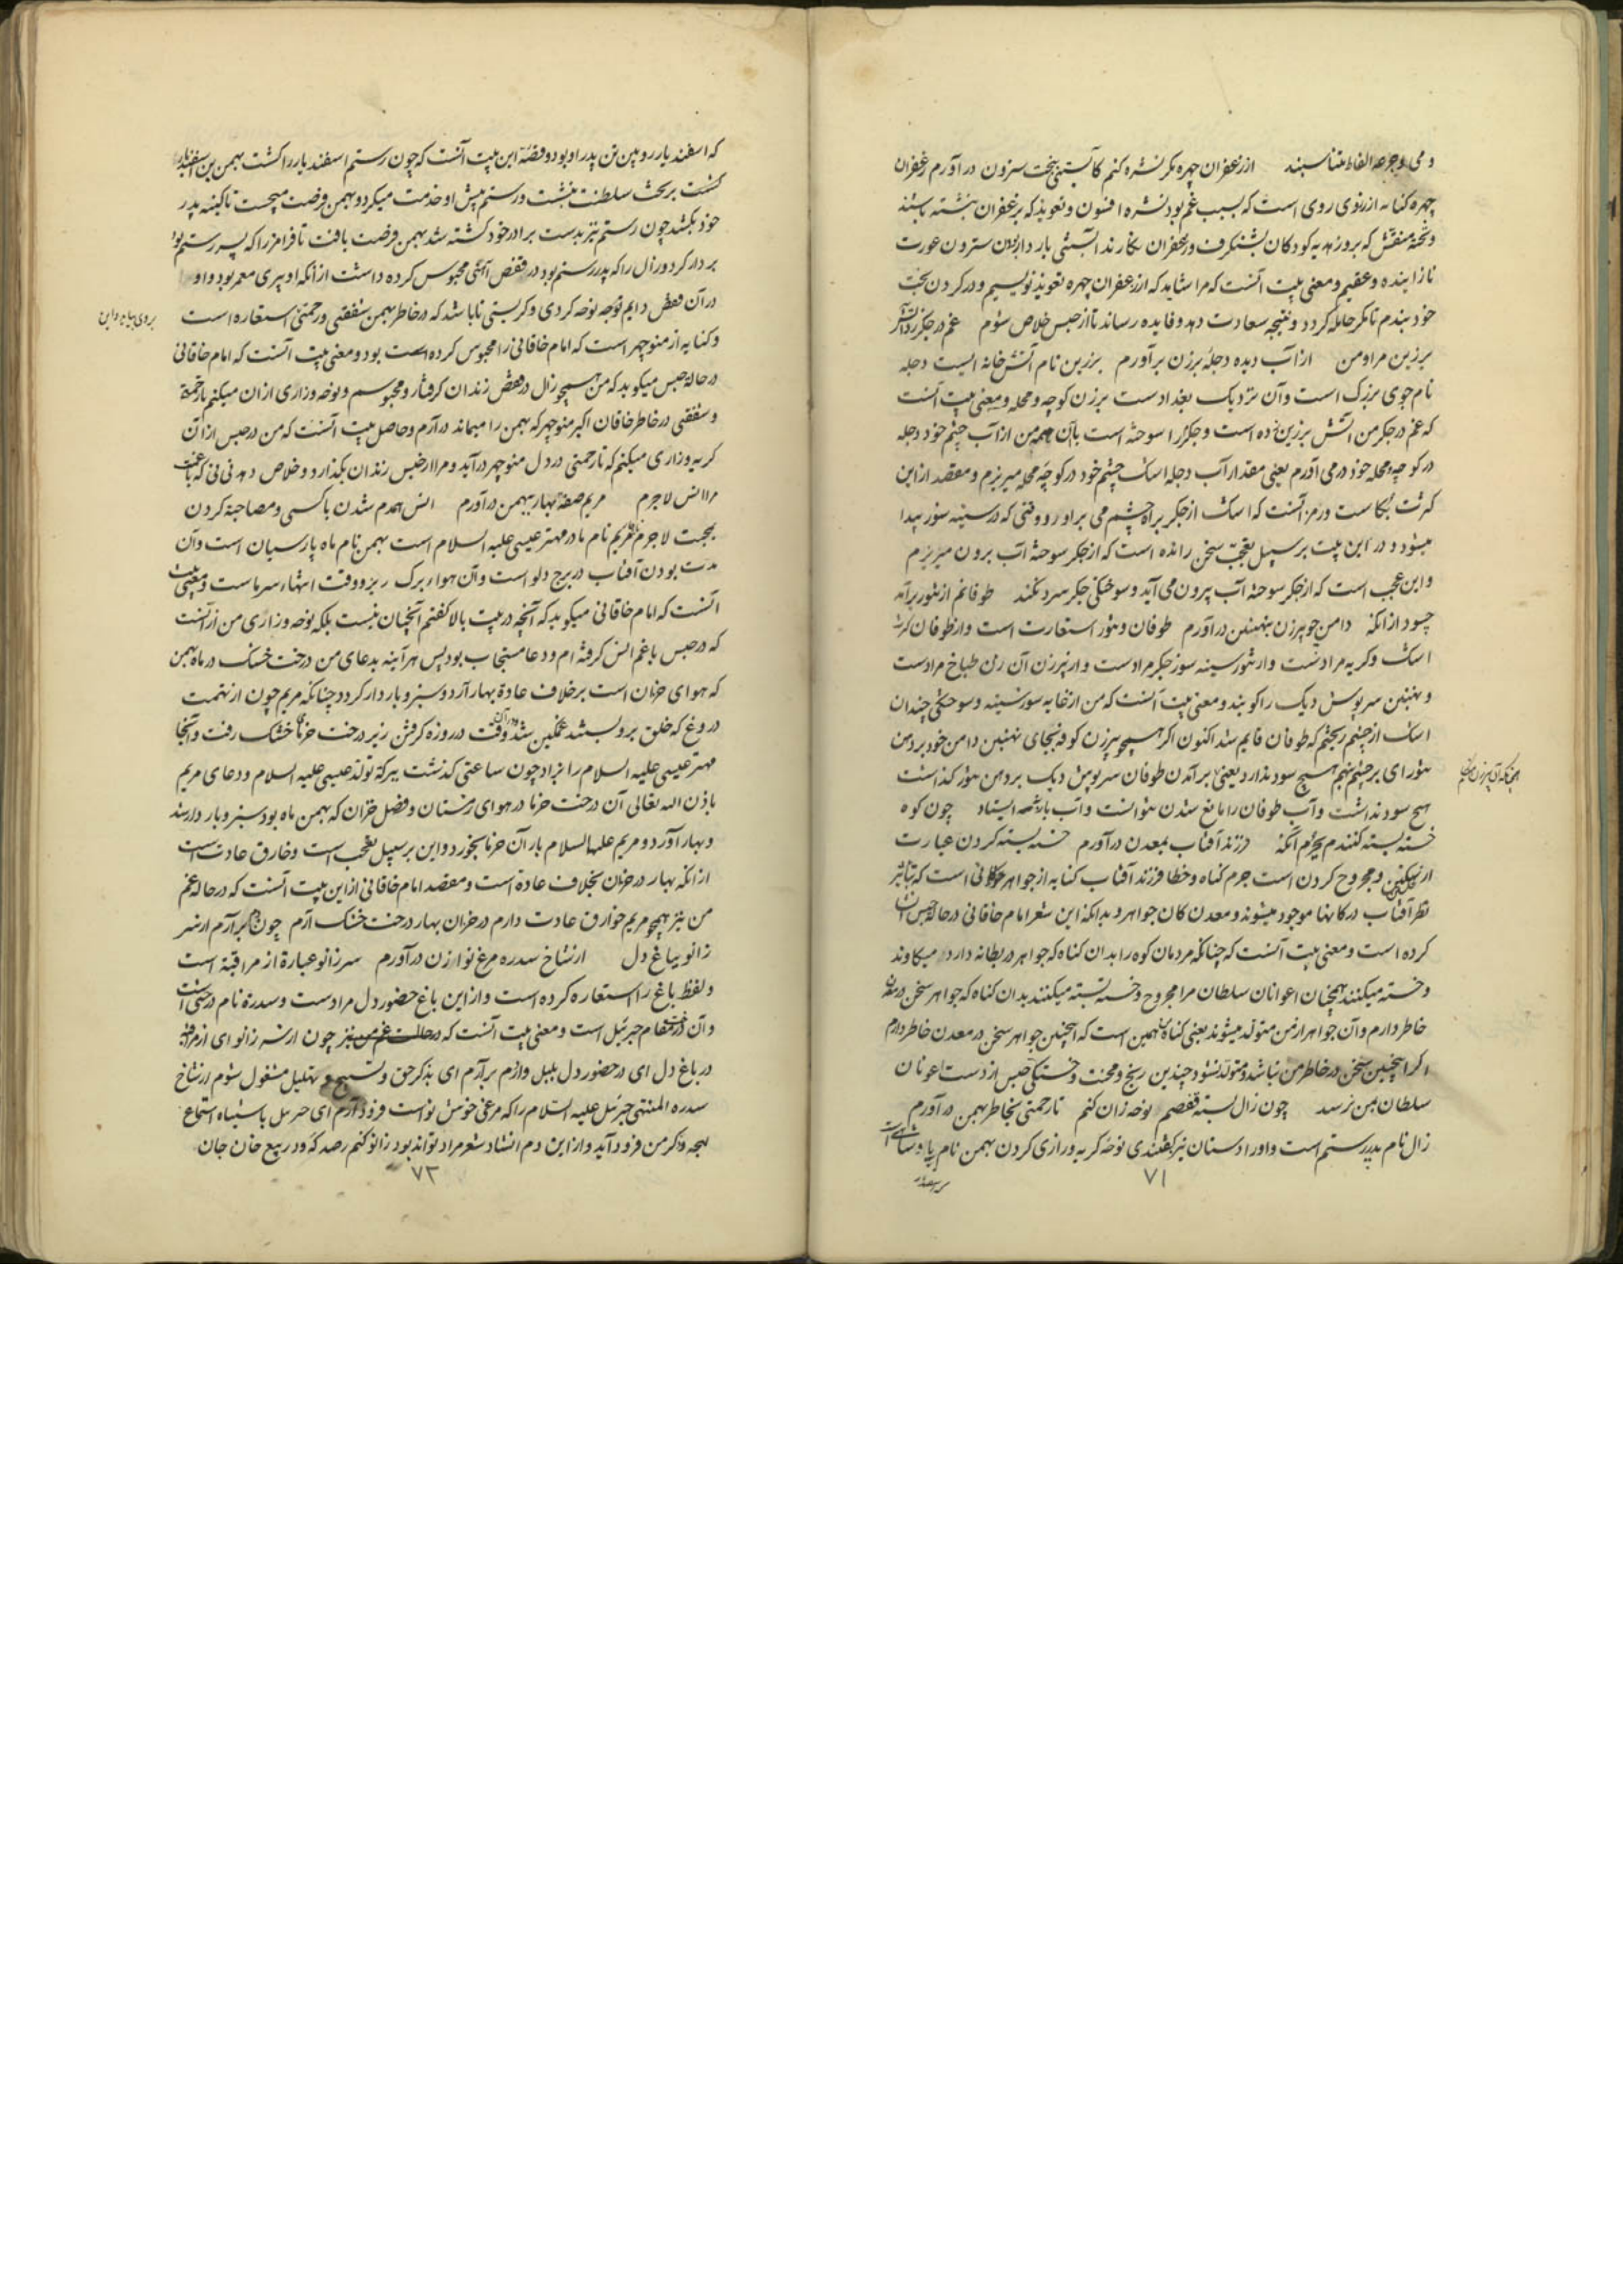 و می و جرعه الفاظ متناسبند از زعفران چهره مگر نشره کنم کآبستنی بخت سترون درآورم زعفران
چهره کنایه از زردی روی است که بسبب غم بود نشره افسون و تعویذ که بزعفران نبشته باشند
و تختهٔ منقش که بروز عید به کودکان بشنگرف و زعفران نگارند آبستنی باردار بودن سترون عورت
نازاینده و عقیم و معنی بیت آنست که مرا شاید که از زعفران چهره تعویذ نویسم و در گردن بخت
خود بندم تا مگر حامله گردد و نتیجه سعادت دهد و فایده رساند تا از حبس خلاص شوم غم در جگر زد آتش
برزین مرا و من از آب دیده دجله ببرزن برآورم برزین نام آتش خانه ایست دجله
نام جوی بزرگ است و آن نزدیک بغدادست برزن کوچه و محله و معنی بیت آنست
که غم در جگر من آتش برزین زده است و جگر را سوخته است با آن همه من از آب چشم خود دجله
در کوچه و محله خود در می آورم یعنی مقدار آب دجله اشک چشم خود در کوچه محله میریزم و مقصد از این
کثرت بکاست و رمز آنست که اشک از جگر براه چشم می برآورد وقتی که در سینه سوز پیدا
میشود و در این بیت بر سبیل تعجب سخن رانده است که از جگر سوخته آب برون میریزم
و این عجب است که از جگر سوخته آب بیرون می آید و سوختگی جگر سرد نکند طوفانم از تنور برآمد
چسود از آنکه دامن چو پیرزن بنهنبن درآورم طوفان و تنور استعارت است و از طوفان کثرت
اشک و گریه مرادست و از تنور سینه سوز جگر مرادست و از پیرزن آن زن طباخ مرادست
و نهنبن سرپوش دیگ را گویند و معنی بیت آنست که من از غایه سوز سینه و سوختگی چندان
اشک از چشم ریختم که طوفان قایم شد اکنون اگر همچو پیرزن کوفه بجای نهنبن دامن خود بر دهن
تنور ای بر چشم نهم هیچ سود ندارد یعنی برآمدن طوفان سرپوش دیگ بر دهن تنور گذاشت
همچنانکه آن پیرزن
هیچ سود نداشت و آب طوفان را مانع شدن نتوانست و آب بازنه ایستاد چون کوه
خسته بسته کنندم بجرم آنکه فرزند آفتاب بمعدن درآورم خسته بسته کردن عبارت
از شکستن و مجروح کردن است جرم گناه و خطا فرزند آفتاب کنایه از جواهر کانی است که بتأثیر
نظر آفتاب در کانها موجود میشوند و معدن کان جواهر و بدانکه این شعر امام خاقانی در حالت حبس انشا
کرده است و معنی بیت آنست که چنانکه مردمان کوه را بدان گناه که جواهر در بطانه دارد میکاوند
و خسته میکنند همچنان اعوانان سلطان مرا مجروح و خسته بسته میکنند بدان گناه که جواهر سخن در معدن
خاطر دارم و آن جواهر از من متولد میشوند یعنی گناه همین است که اینچنین جواهر سخن در معدن خاطر دارم
اگر اینچنین سخن در خاطر من نباشد و متولد نشود چندین رنج و محنت و خستگی حبس از دست اعونان
سلطان بمن نرسد چون زال بسته قفصم نوحه زان کنم تا رحمتی بخاطر بهمن درآورم
زال نام پدر رستم است و او را دستان نیز گفتندی نوحه گریه و زاری کردن بهمن نام پادشاهی است
۷۱
که اسفندیار رویین تن پدر او بود و قصه این بیت آنست که چون رستم اسفندیار را کشت بهمن بن اسفندیار
گشت بر تخت سلطنت بنشست و رستم پیش او خدمت میکرد و بهمن فرصت میجست تا کینه پدر
خود بکشد چون رستم نیز بدست برادر خود کشته شد بهمن فرصت یافت تا فرامرز را که پسر رستم بود
بر دار کرد و زال را که پدر رستم بود در قفص آهنی محبوس کرده داشت از آنکه او پیری معمر بود و او
در آن قفص دایم نوحه کردی و گریستی تا باشد که در خاطر بهمن شفقتی و رحمتی استعاره است
بروی بیاید و این
و کنایه از منوچهر است که امام خاقانی را محبوس کرده بود و معنی بیت آنست که امام خاقانی
در حاله حبس میگوید که من همچو زال در قفص زندان گرفتار و محبوسم و نوحه و زاری از آن میکنم تا رحمتی
و شفقتی در خاطر خاقان اکبر منوچهر که بهمن را میماند درآرم و حاصل بیت آنست که من در حبس از آن
گریه و زاری میکنم که تا رحمتی در دل منوچهر درآید و مرا از حبس زندان بگذارد و خلاص دهد نی نی که با غمت
مرا انس لاجرم مریم صفة بهار ببهمن درآورم انس همدم شدن با کسی و مصاحبة کردن
بمحبت لاجرم مریم نام مادر مهتر عیسی علیه السلام است بهمن نام ماه پارسیان است و آن
مدت بودن آفتاب در برج دلو است و آن هواء برگ ریز و وقت انتهاء سرماست و معنی بیت
آنست که امام خاقانی میگوید که آنچه در بیت بالا گفتم آنچنان نیست بلکه نوحه و زاری من از آنست
که در حبس با غم انس گرفته ام و دعا مستجاب بود پس هر آینه بدعای من درخت خشک در ماه بهمن
که هوای خزان است برخلاف عادة بهار آرد و سبز و باردار گردد چنانکه مریم چون از تهمت
دروغ که خلق برو بستند غمگین شد و وقت دروزه گرفتن زیر درخت خرما خشک رفت و آنجا
مهتر عیسی علیه السلام را بزاد چون ساعتی گذشت ببرکة تولد عیسی علیه السلام و دعای مریم
باذن الله تعالی آن درخت خرما در هوای زمستان و فصل خزان که بهمن ماه بود سبز و باردار شد
و بهار آورد و مریم علیها السلام بار آن خرما بخورد و این بر سبیل تعجب است و خارق عادت است
از آنکه بهار در خزان بخلاف عادة است و مقصد امام خاقانی از این بیت آنست که در حاله غم
من نیز همچو مریم خوارق عادت دارم در خزان بهار درخت خشک آرم چون برآرم از سر
زانو بباغ دل از شاخ سدره مرغ نوازن درآورم سر زانو عبارة از مراقبة است
و لفظ باغ را استعاره کرده است و از این باغ حضور دل مرادست و سدرة نام درختی است
و آن درخت مقام جبرئیل است و معنی بیت آنست که در حالت غم من نیز چون از سر زانو ای از مراقبه
در باغ دل ای در حضور دل بلبل وازم برآرم ای بذکر حق و تسبیح و تهلیل مشغول شوم از شاخ
سدره المنتهی جبرئیل علیه السلام را که مرغی خوش نواست فرود آرم ای جبرئیل باشتباه استماع
لهجه ذکر من فرود آید و از این دم انشاد شعر مراد تواند بود زانو کنم رصدگه و در بیع خان جان
۷۲